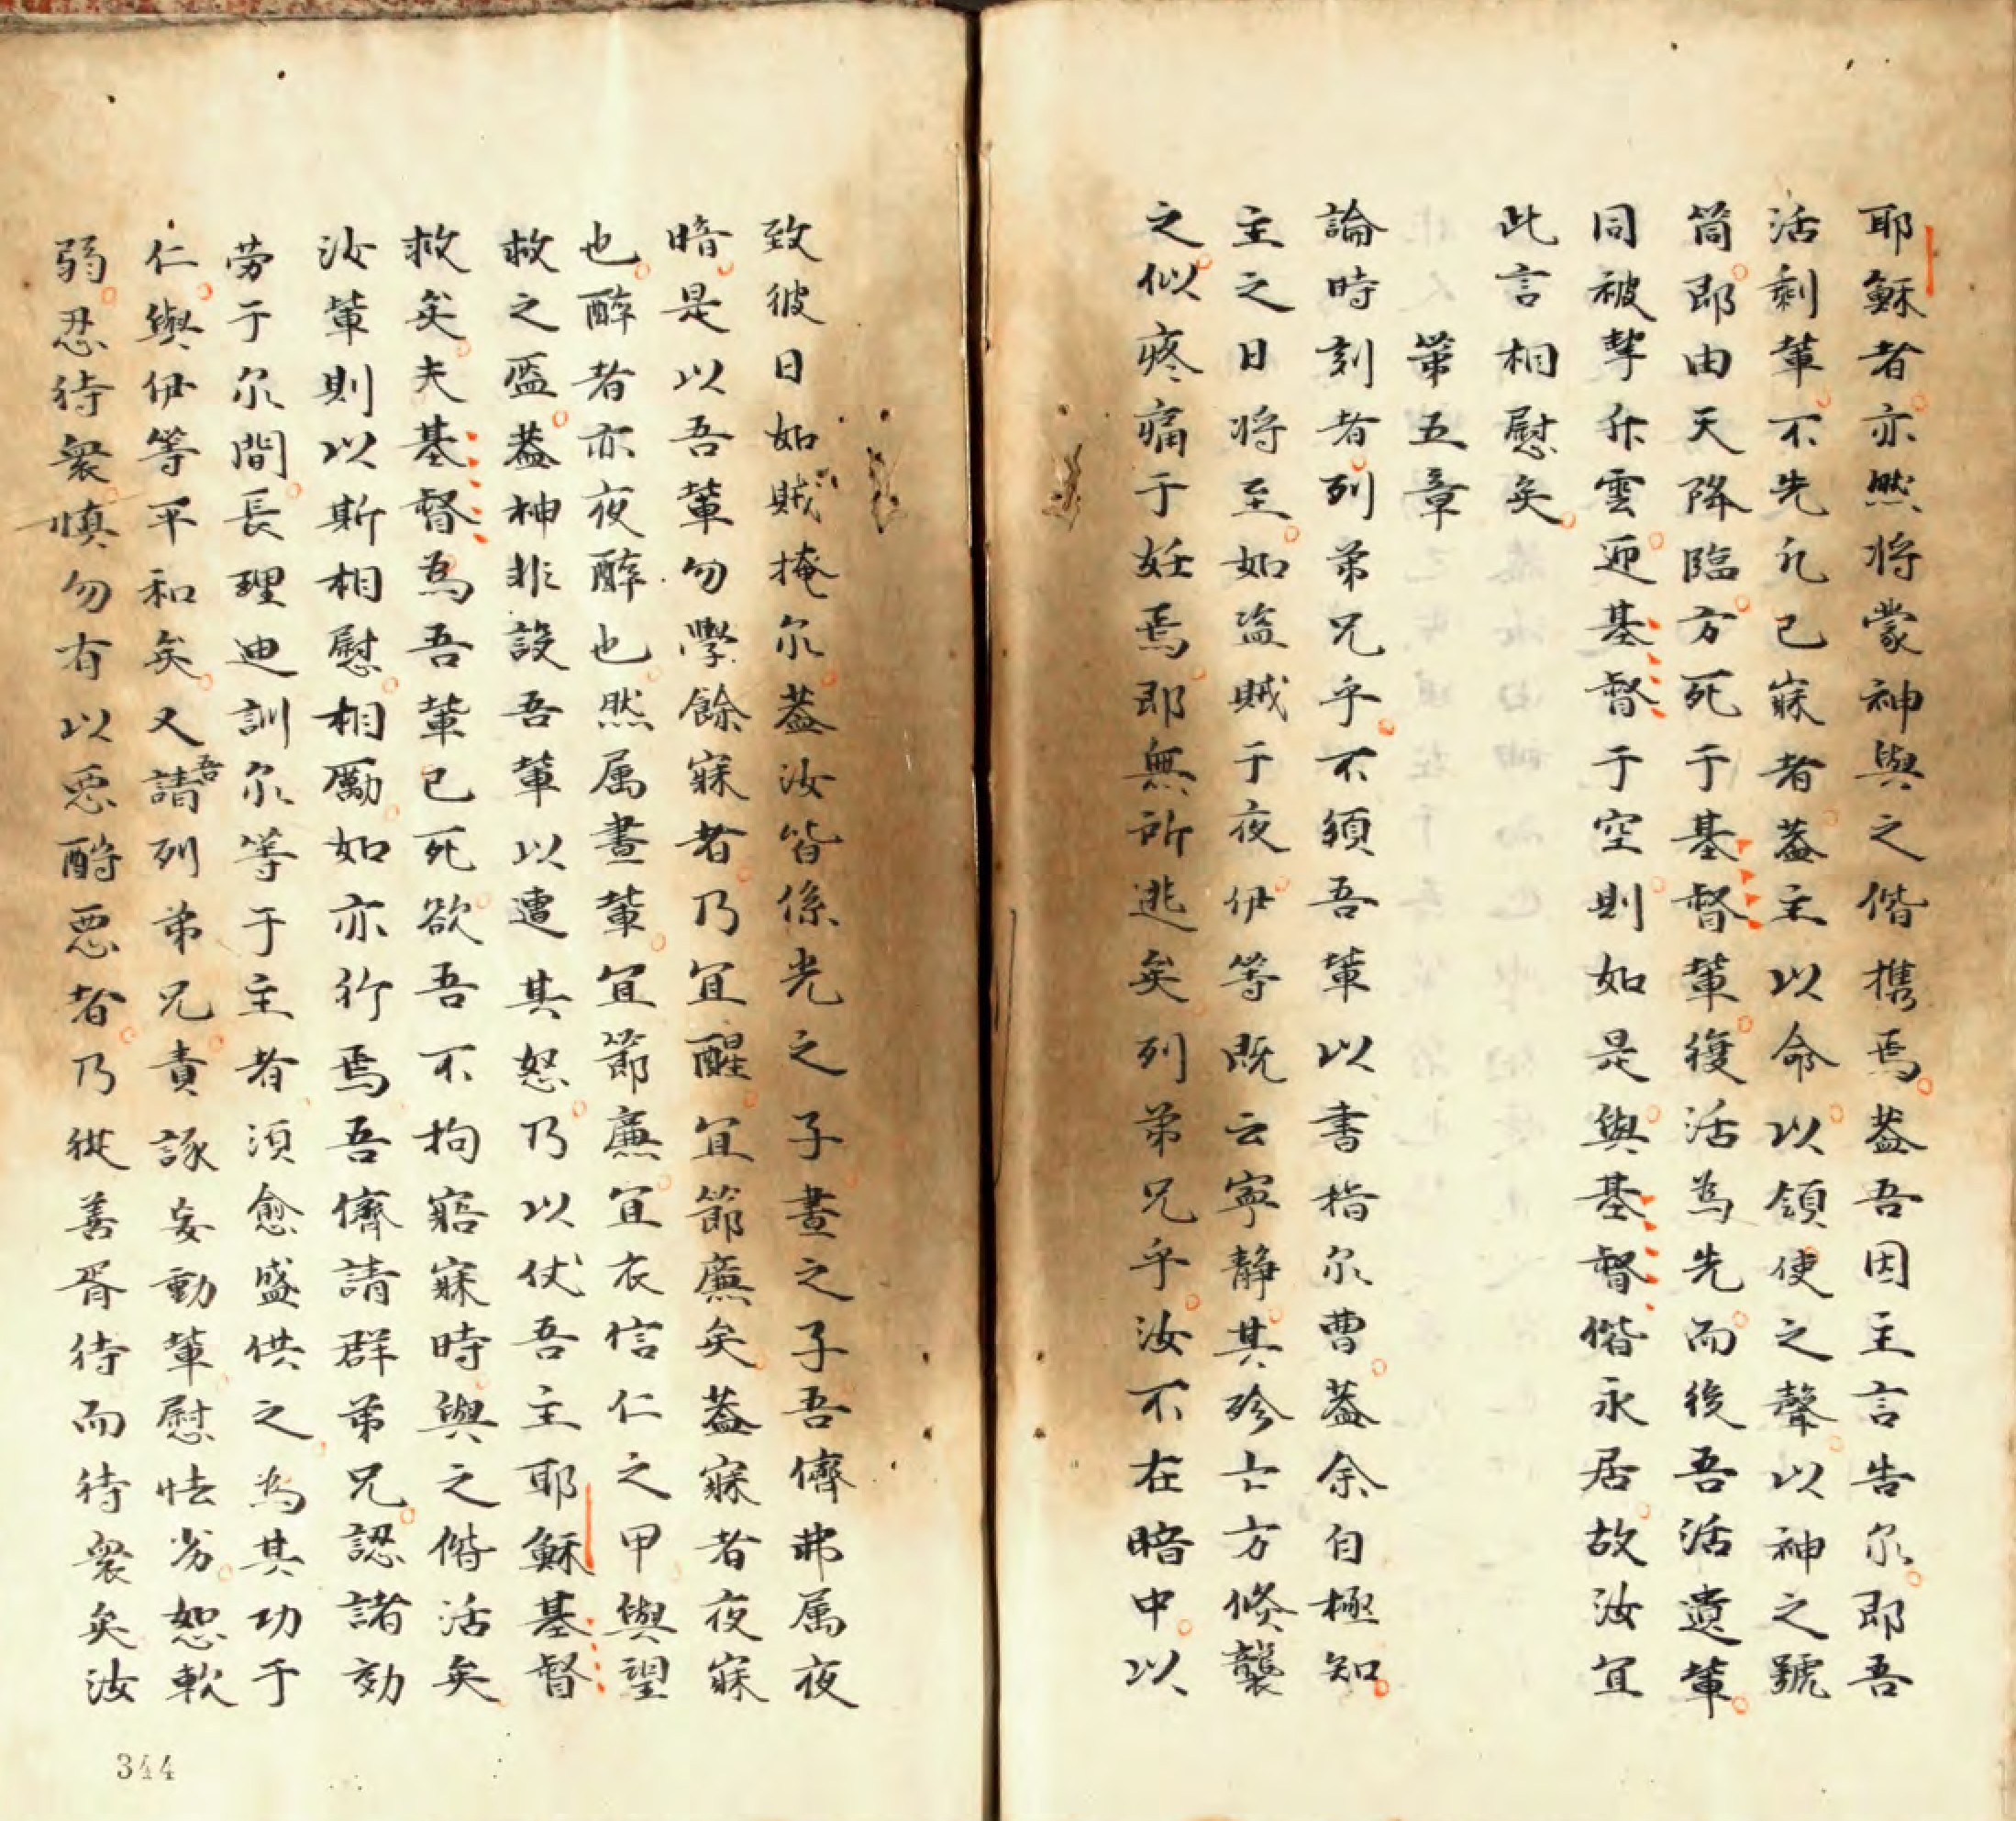 耶穌者亦然将蒙神與之偕攜焉盖吾因主言告尔即吾
活剩輩不先凡已寐者盖主以命以領使之聲以神之號
筒即由天降臨方死于基督輩復活為先而後吾活遺輩
同被挈升雲迎基督于空則如是與基督偕永居故汝宜
此言相慰矣
第五章
論時刻者列弟兄乎不須吾輩以書指尔曹盖余自極知
主之日将至如盗賊于夜伊等既云寧静其殄亡方倏襲
之似疼痛于妊焉即無所逃矣列弟兄乎汝不在暗中以
致彼日如賊掩尔盖汝皆係光之子晝之子吾儕弗属夜
暗是以吾輩勿學餘寐者乃宜醒宜節廉矣盖寐者夜寐
也醉者亦夜醉也然属晝輩宜節廉宜衣信仁之甲與望
救之盔盖神非設吾輩以遭其怒乃以仗吾主耶穌基督
救矣夫基督為吾輩已死欲吾不拘寤寐時與之偕活矣
汝輩則以斯相慰相勵如亦行焉吾儕請群弟兄認諸効
劳于尔間長理迪訓尔等于主者須愈盛供之為其功于
仁與伊等平和矣又請吾列弟兄責諑妄動輩慰怯劣恕軟
弱忍待衆慎勿有以惡酧惡者乃從善胥待而待衆矣汝
344